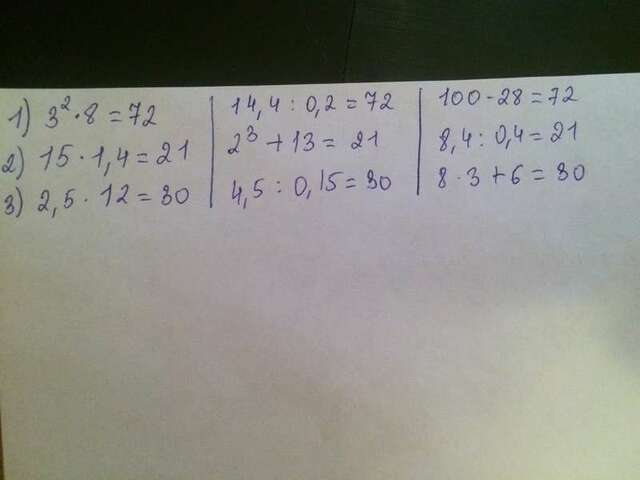 1) 3²·8=72 | 14,4:0,2=72 | 100-28=72
2) 15·1,4=21 | 2³+13=21 | 8,4:0,4=21
3) 2,5·12=30 | 4,5:0,15=30 | 8·3+6=30